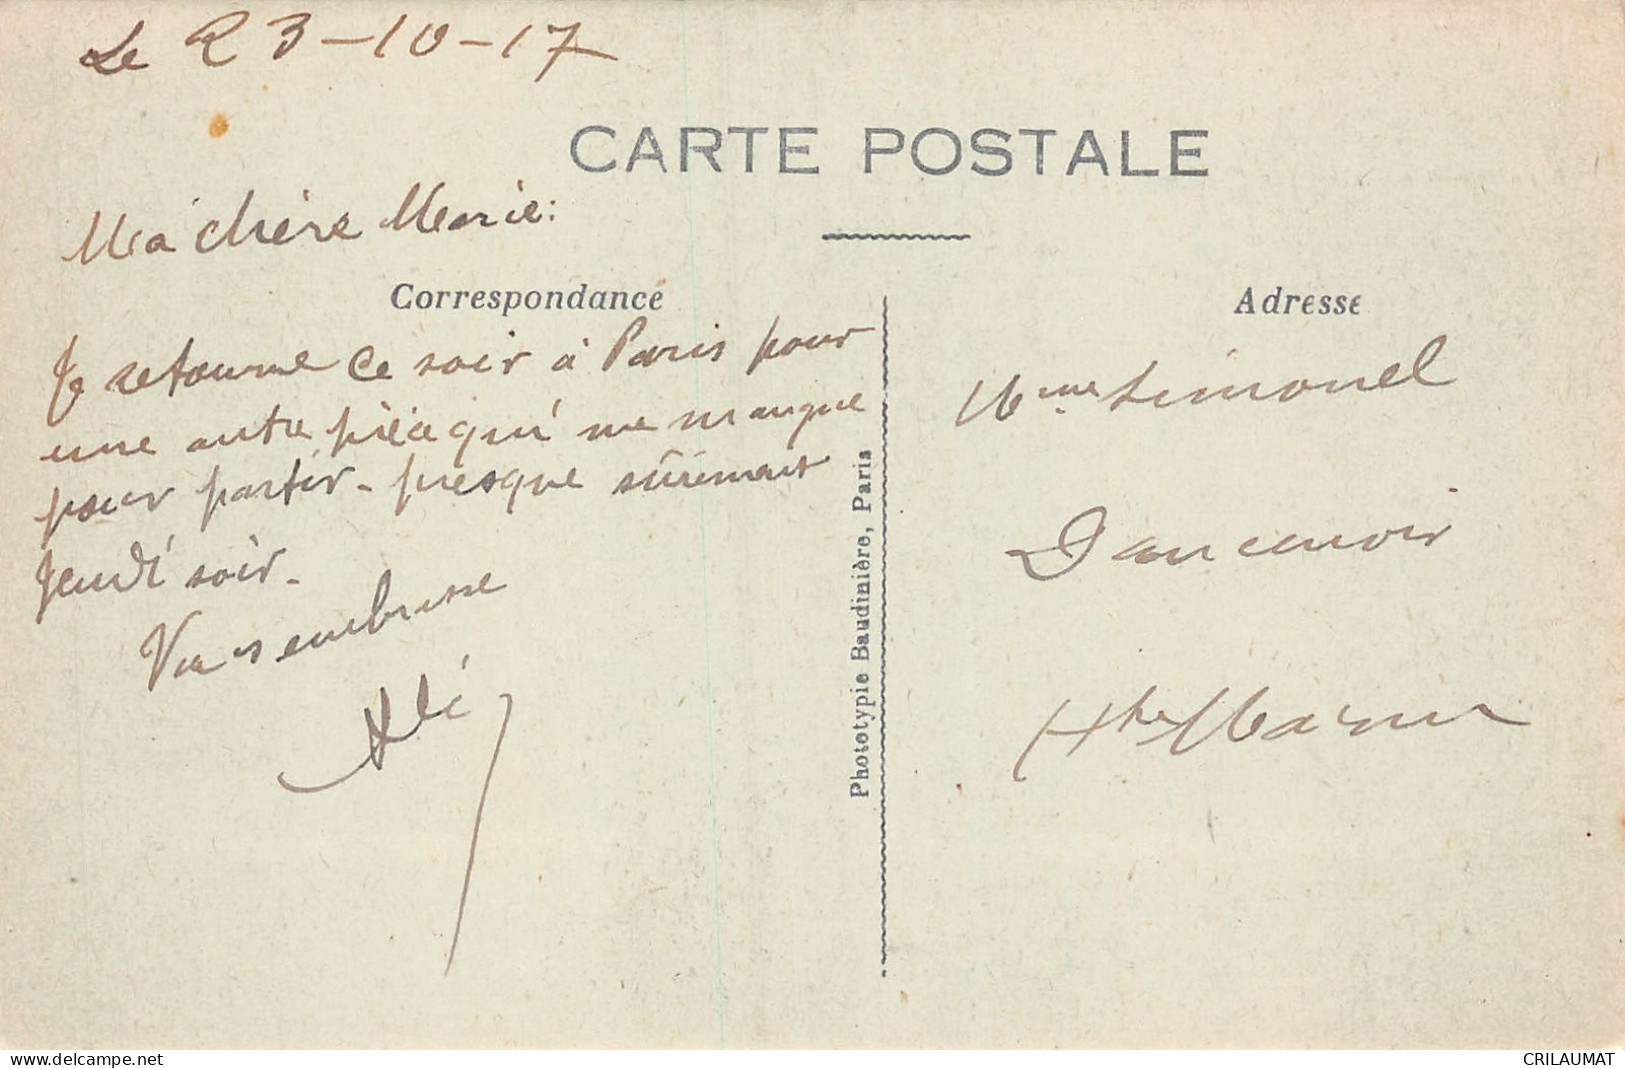 Le 23-10-17
CARTE POSTALE
Ma chère Marie:
Correspondance
Je retourne ce soir à Paris pour
une autre pièce qui me manque
pour partir - presque sûrement
Jeudi soir -
Vous embrasse
Adresse
Mme Simonel
Dancevoir
Hte Marne
Phototypie Baudinière, Paris
www.delcampe.net
CRILAUMAT